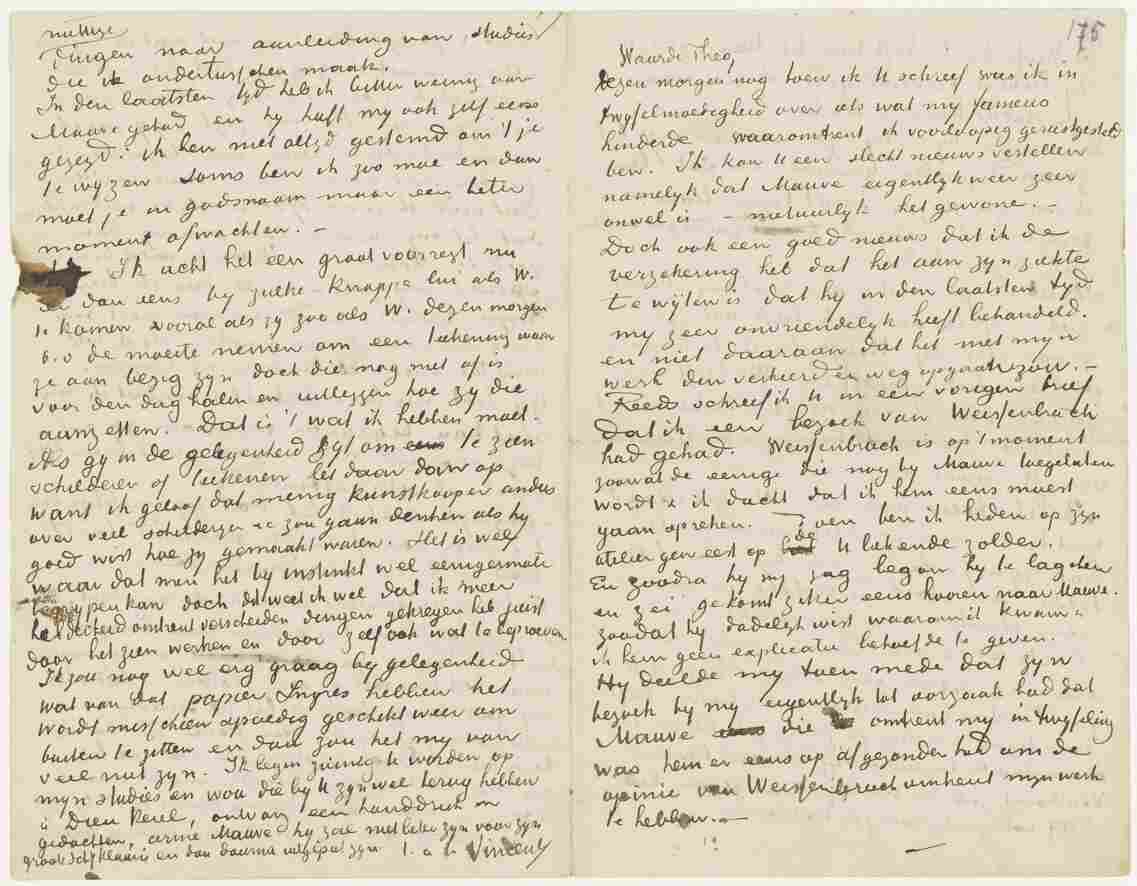 nuttige
dingen naar aanleiding van studies
die ik ondertusschen maak.
In den laatsten tyd heb ik bitter weinig aan
Mauve gehad en hy heeft my ook zelf eens
gezegd: ik ben niet altyd gestemd om 't je
te wyzen soms ben ik zoo moe en dan
moet je in godsnaam maar een beter
moment afwachten. –
Ik acht het een groot voorregt nu
en dan eens by zulke knappe lui als W.
te komen vooral als zy zoo als W. dezen morgen
b.v de moeite nemen om een teekening waar
ze aan bezig zyn doch die nog niet af is
voor den dag halen en uitleggen hoe zy die
aanzetten. Dat is 't wat ik hebben moet.
Als gy in de gelegenheid zyt om te zien
schilderen of teekenen let daar dan op
want ik geloof dat menig kunstkooper anders
over veel schilderijen &c zou gaan denken als hy
goed wist hoe zy gemaakt waren. Het is wel
waar dat men het by instinkt wel eenigermate
begrypen kan doch dit weet ik wel dat ik meer
helderheid omtrent verscheiden dingen gekregen heb juist
door het zien werken en door zelf ook wat te beproeven
Ik zou nog wel erg graag by gelegenheid
wat van dat papier Ingres hebben het
wordt misschien spoedig geschikt weer om
buiten te zitten en dan zou het my van
veel nut zyn. Ik begin zuinig te worden op
myn studies en wou die by U zyn wel terug hebben
à Dieu kerel, ontvang een handdruk in
gedachten, arme Mauve hy zal niet beter zyn voor zyn
groote schy klaar is en dan daarna uitgeput zyn t. à t. Vincent
175
Waarde Theo,
Dezen morgen nog toen ik U schreef was ik in
twyfelmoedigheid over iets wat my fameus
hinderde waaromtrent ik voorloopig gerustgesteld
ben. Ik kan U een slecht nieuws vertellen
namelyk dat Mauve eigentlyk weer zeer
onwel is – natuurlyk het gewone. –
Doch ook een goed nieuws dat ik de
verzekering heb dat het aan zyn ziekte
te wyten is dat hy in den laatsten tyd
my zeer onvriendelyk heeft behandeld.
en niet daaraan dat het met myn
werk den verkeerden weg opgaan zou. –
Reeds schreef ik U in een vorigen brief
dat ik een bezoek van Weissenbruch
had gehad. Weissenbruch is op 't moment
zoowat de eenige die nog by Mauve toegelaten
wordt & ik dacht dat ik hem eens moest
gaan spreken. Toen ben ik heden op zyn
atelier geweest op de U bekende zolder.
En zoodra hy my zag begon hy te lagchen
en zei ge komt zeker eens hooren naar Mauve.
zoodat hy dadelyk wist waarom ik kwam &
ik hem geen explicatie behoefde te geven.
Hy deelde my toen mede dat zyn
bezoek by my eigentlyk tot oorzaak had dat
Mauve die omtrent my in twyfeling
was hem er eens op afgezonden had om de
opinie van Weissenbruch omtrent myn werk
te hebben. –